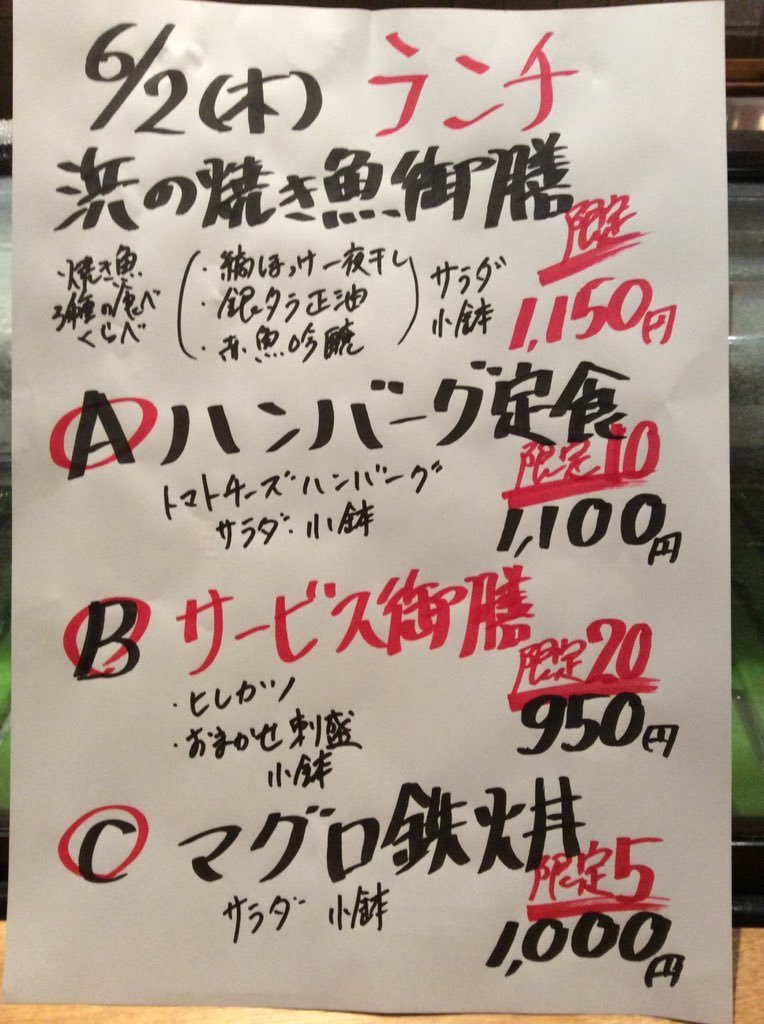 6/2(木) ランチ
浜の焼き魚御膳
限定
焼き魚
3種の食べ
くらべ
(・縞ほっけ一夜干し
・銀タラ正油
・赤魚吟醸)
サラダ
小鉢
1,150円
A ハンバーグ定食
限定10
トマトチーズハンバーグ
サラダ・小鉢
1,100円
B サービス御膳
限定20
・ヒレカツ
・おまかせ刺盛
小鉢
950円
C マグロ鉄火丼
限定5
サラダ 小鉢
1,000円